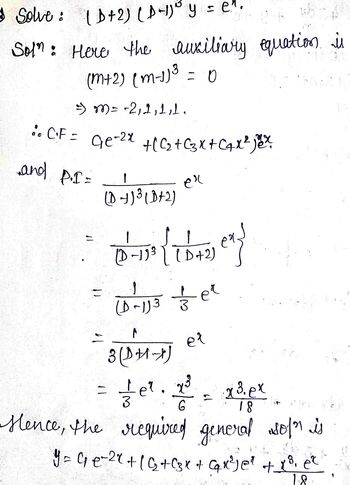 Solve : (D+2) (D-1)³ y = eˣ.
Solⁿ : Here the auxiliary equation is
(m+2) (m-1)³ = 0
⇒ m = -2, 1, 1, 1.
∴ C.F = C₁e⁻²ˣ + (C₂+C₃x+C₄x²)eˣ.
and P.I = 1/((D-1)³(D+2)) eˣ
= 1/(D-1)³ {1/(D+2) eˣ}
= 1/(D-1)³ 1/3 eˣ
= 1/(3(D+1-1)) eˣ
= 1/3 eˣ · x³/6 = x³·eˣ/18.
Hence, the required general solⁿ is
y = C₁e⁻²ˣ + (C₂+C₃x+C₄x²)eˣ + x³·eˣ/18.